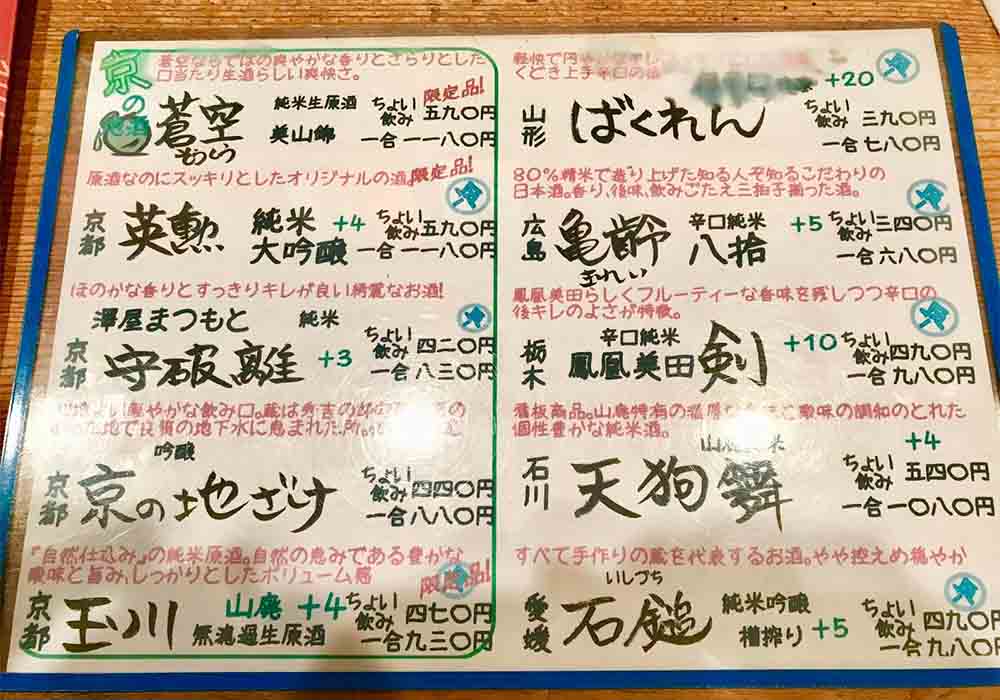 京の地酒
蒼空ならではの爽やかな香りとさらりとした
口当たり生酒らしい爽快さ。
限定品!
蒼空
そうくう
純米生原酒
美山錦
ちょい飲み 五九〇円
一合 一一八〇円
原酒なのにスッキリとしたオリジナルの酒。
限定品!
冷
京都
英勲
純米
大吟醸
+4
ちょい飲み 五九〇円
一合 一一八〇円
ほのかな香りとすっきりキレが良い綺麗なお酒!
冷
京都
澤屋まつもと
純米
守破離
+3
ちょい飲み 四二〇円
一合 八三〇円
やかな飲み口。蔵は秀吉の
地で良質の地下水に恵まれた所。
吟醸
京都
京の地ざけ
ちょい飲み 四四〇円
一合 八八〇円
『自然仕込み』の純米原酒。自然の恵みである豊かな
酸味と旨み、しっかりとしたボリューム麺
限定品!
冷
京都
玉川
山廃 +4
無濾過生原酒
ちょい飲み 四七〇円
一合 九三〇円
軽快で円
くどき上手辛口の
+20
冷
山形
ばくれん
ちょい飲み 三九〇円
一合 七八〇円
80%精米で造り上げた知る人ぞ知るこだわりの
日本酒。香り、後味、飲みごたえ三拍子揃った酒。
冷
広島
亀齢
きれい
辛口純米
八拾
+5
ちょい飲み 三四〇円
一合 六八〇円
鳳凰美田らしくフルーティーな香味を残しつつ辛口の
後キレのよさが特徴。
冷
栃木
辛口純米
鳳凰美田 剣
+10
ちょい飲み 四九〇円
一合 九八〇円
看板商品。山廃特有の濃厚な と酸味の調和のとれた
個性豊かな純米酒。
石川
天狗舞
+4
ちょい飲み 五四〇円
一合 一〇八〇円
すべて手作りの蔵を代表するお酒。やや控えめ穏やか
冷
いしづち
愛媛
石鎚
純米吟醸
槽搾り +5
ちょい飲み 四九〇円
一合 九八〇円